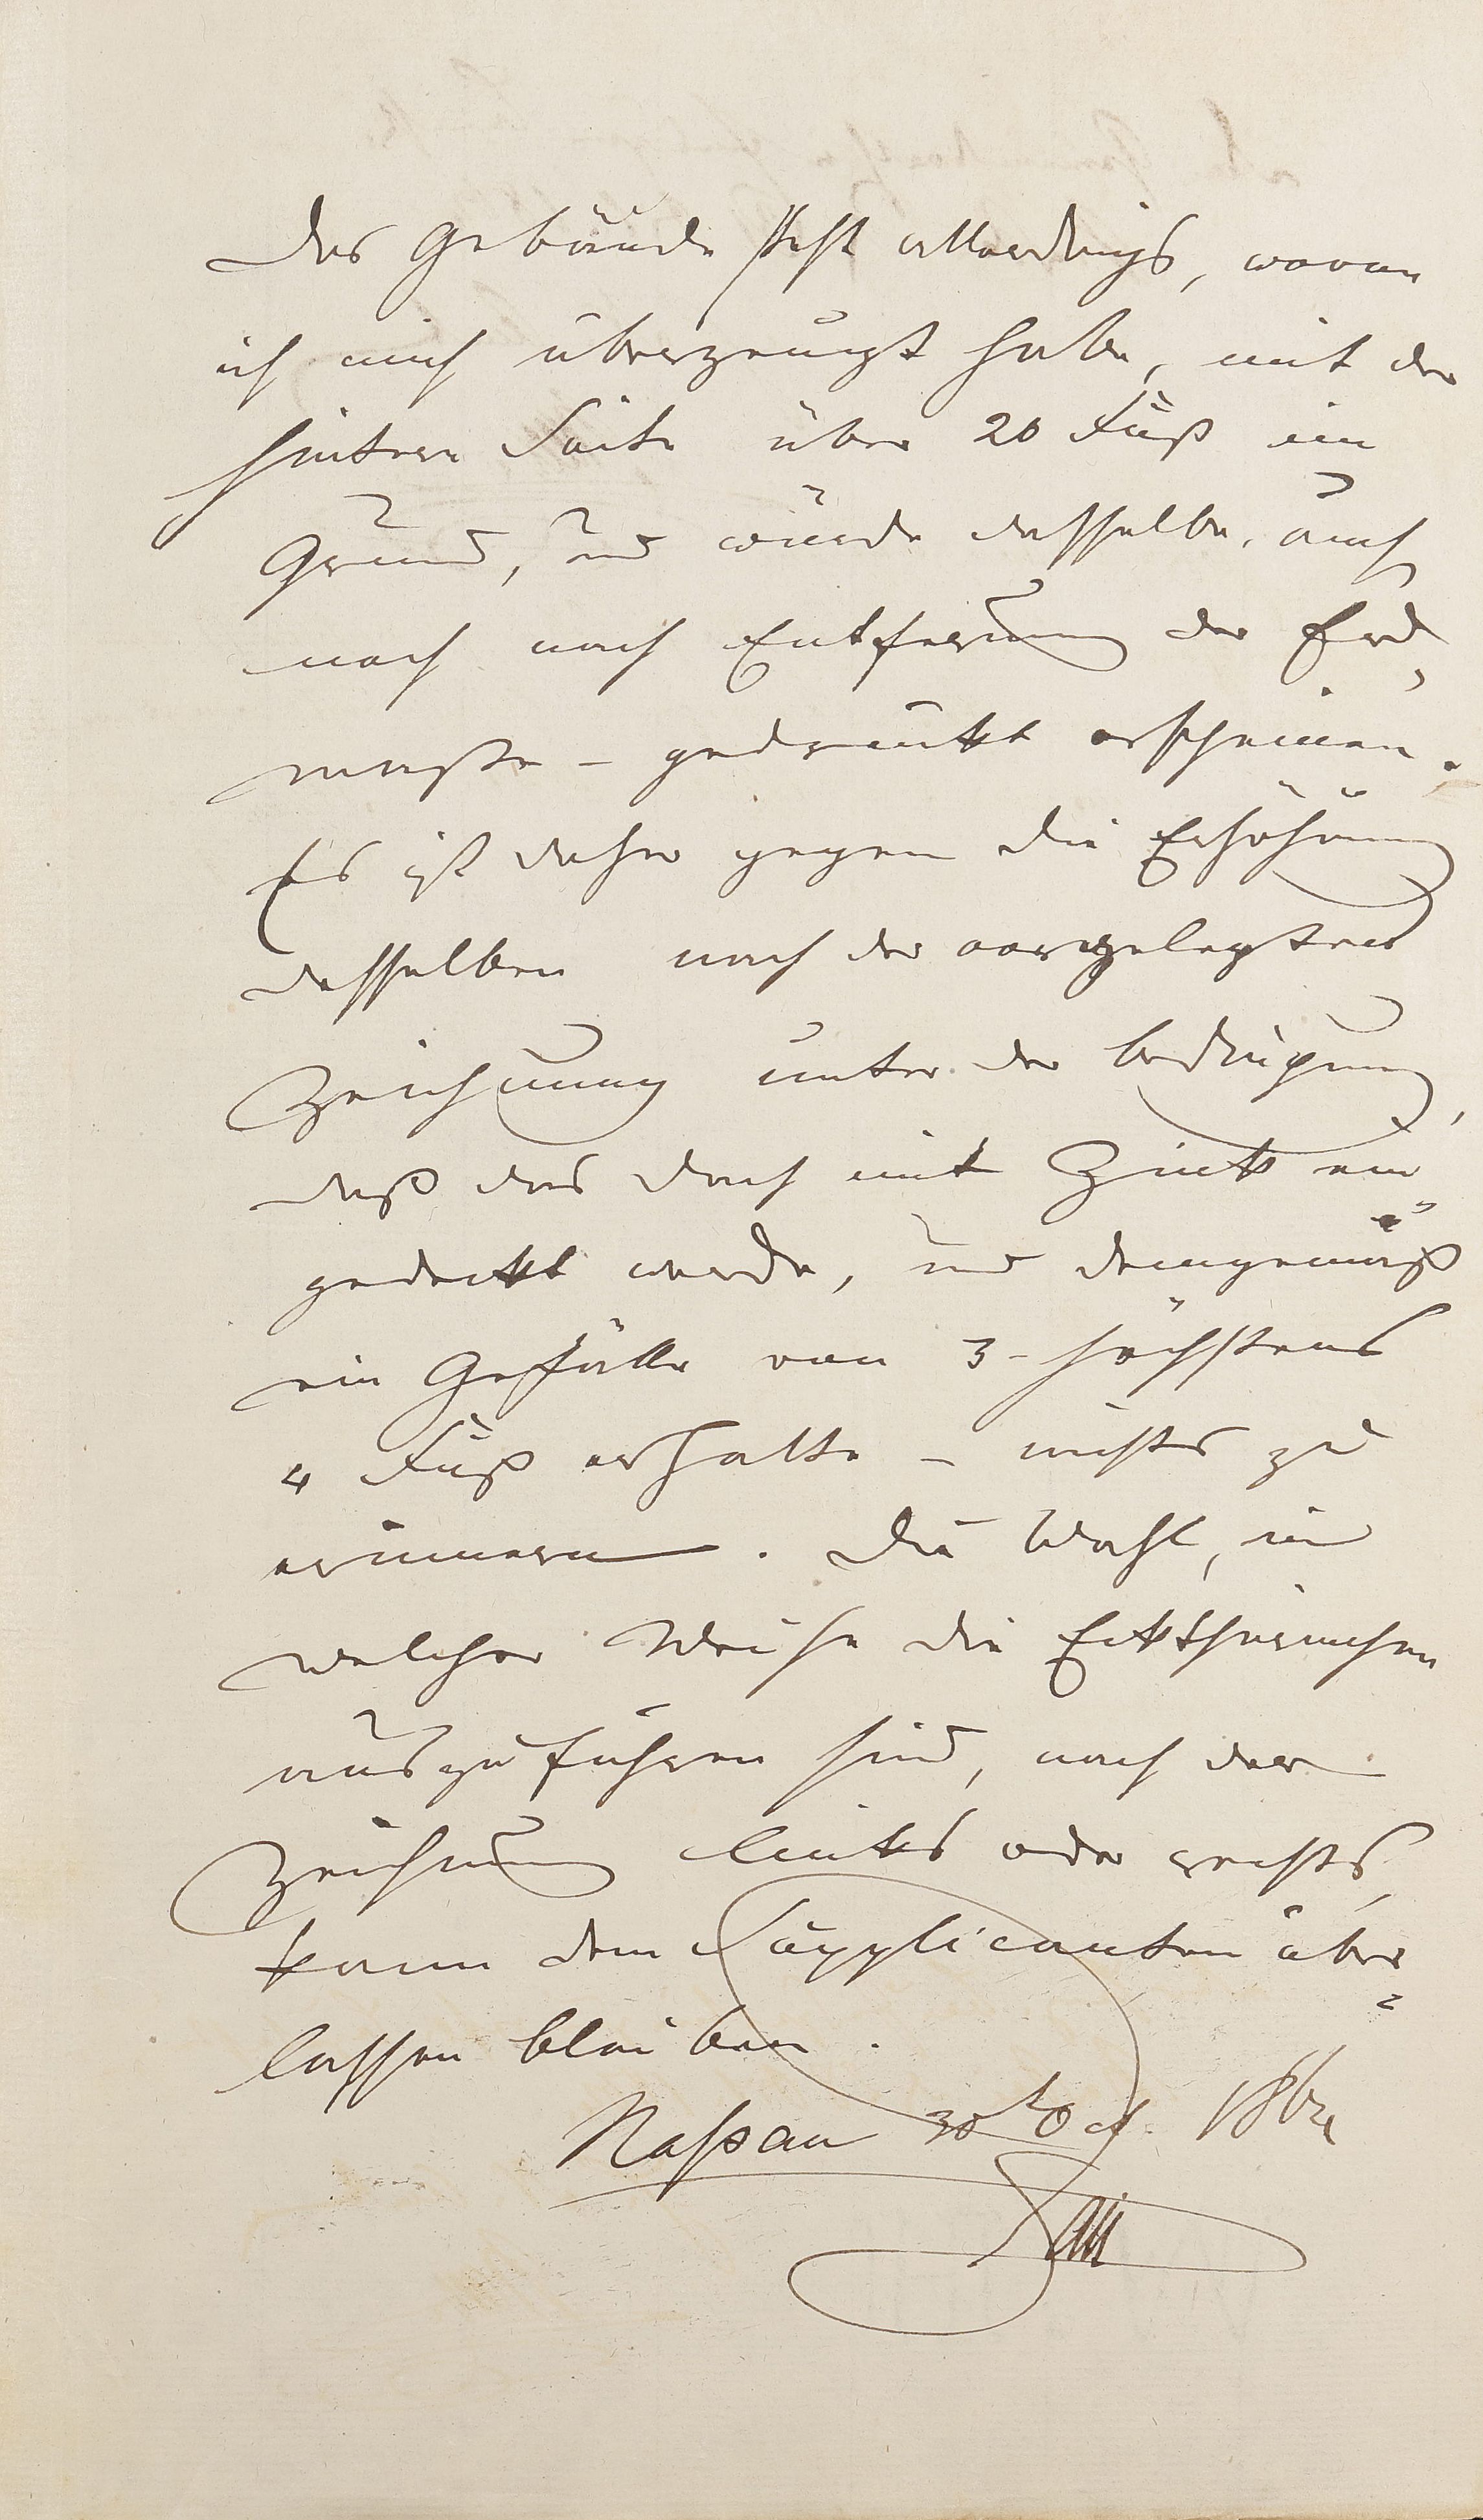 Das Gebäude steht allerdings, wovon
ich mich überzeugt habe, mit der
hintern Seite über 20 Fuß im
Grund, und würde dasselbe, auch
noch nach Entfernung der Erd-
masse - gedrückt erscheinen.
Es ist daher gegen die Erhöhung
desselben nach der vorgelegten
Zeichnung unter der Bedingung,
daß das Dach mit Zink ein-
gedeckt werde, und demgemäß
ein Gefälle von 3 - höchstens
4 Fuß erhalte - nichts zu
erinnern. Die Wahl, in
welcher Weise die
auszuführen sind, nach der
Zeichnung links oder rechts,
kann dem Supplicanten über-
lassen bleiben.
Nassau 30 Oct.